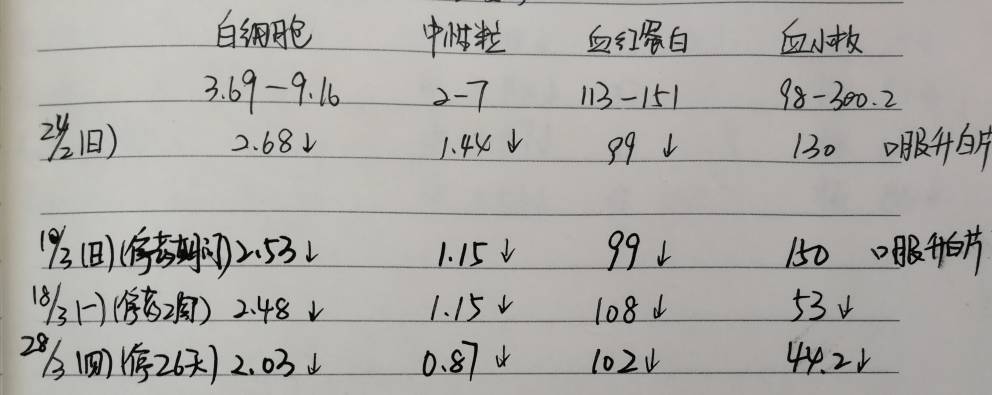 白细胞 中性粒 血红蛋白 血小板
3.69-9.16 2-7 113-151 98-300.2
24/2(日) 2.68↓ 1.44↓ 99↓ 130 口服升白片
10/3(日)(停药期间) 2.53↓ 1.15↓ 99↓ 150 口服升白片
18/3(一)(停药2周) 2.48↓ 1.15↓ 108↓ 53↓
28/3(四)(停26天) 2.03↓ 0.87↓ 102↓ 44.2↓